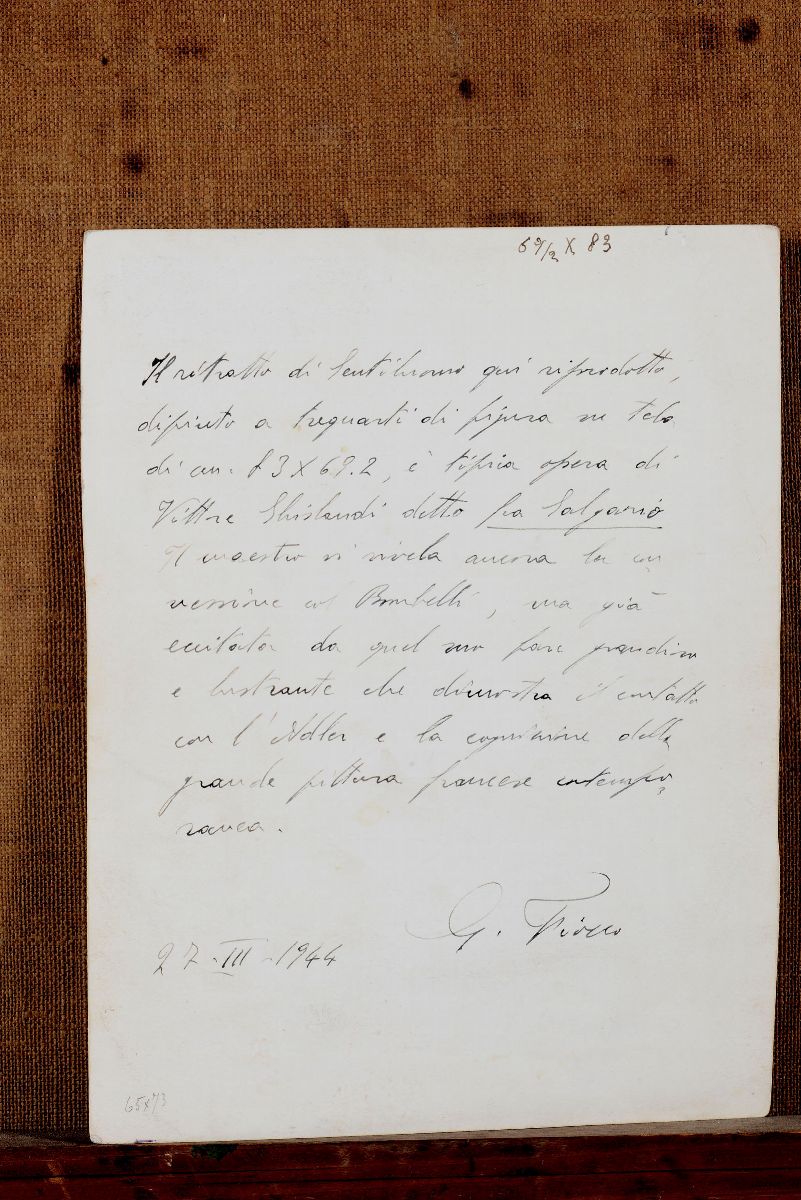 69/2 X 83
Il ritratto di Gentiluomo qui riprodotto,
dipinto a trequarti di figura su tela
di cm. 83 X 69.2, è tipica opera di
Vittore Ghislandi detto fra Galgario
Il maestro vi rivela ancora la con
nessione col Bombelli, ma già
eccitata da quel suo fare grandioso
e lustrante che dimostra il contatto
con l'Adler e la cognizione della
grande pittura francese contempo
ranea.
G. Fiocco
27-III-1944
65x73